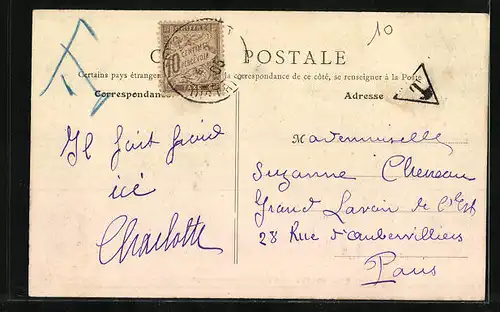 10
POSTALE
10
CENTIMES
A PERCEVOIR
05
T
Certains pays étrangers la correspondance de ce côté, se renseigner à la Poste
Correspondance
Adresse
Il fait froid
ici
Charlotte
Mademoiselle
Suzanne Cheneau
Grand Lavoir de l'Est
28 Rue d'aubervilliers
Paris